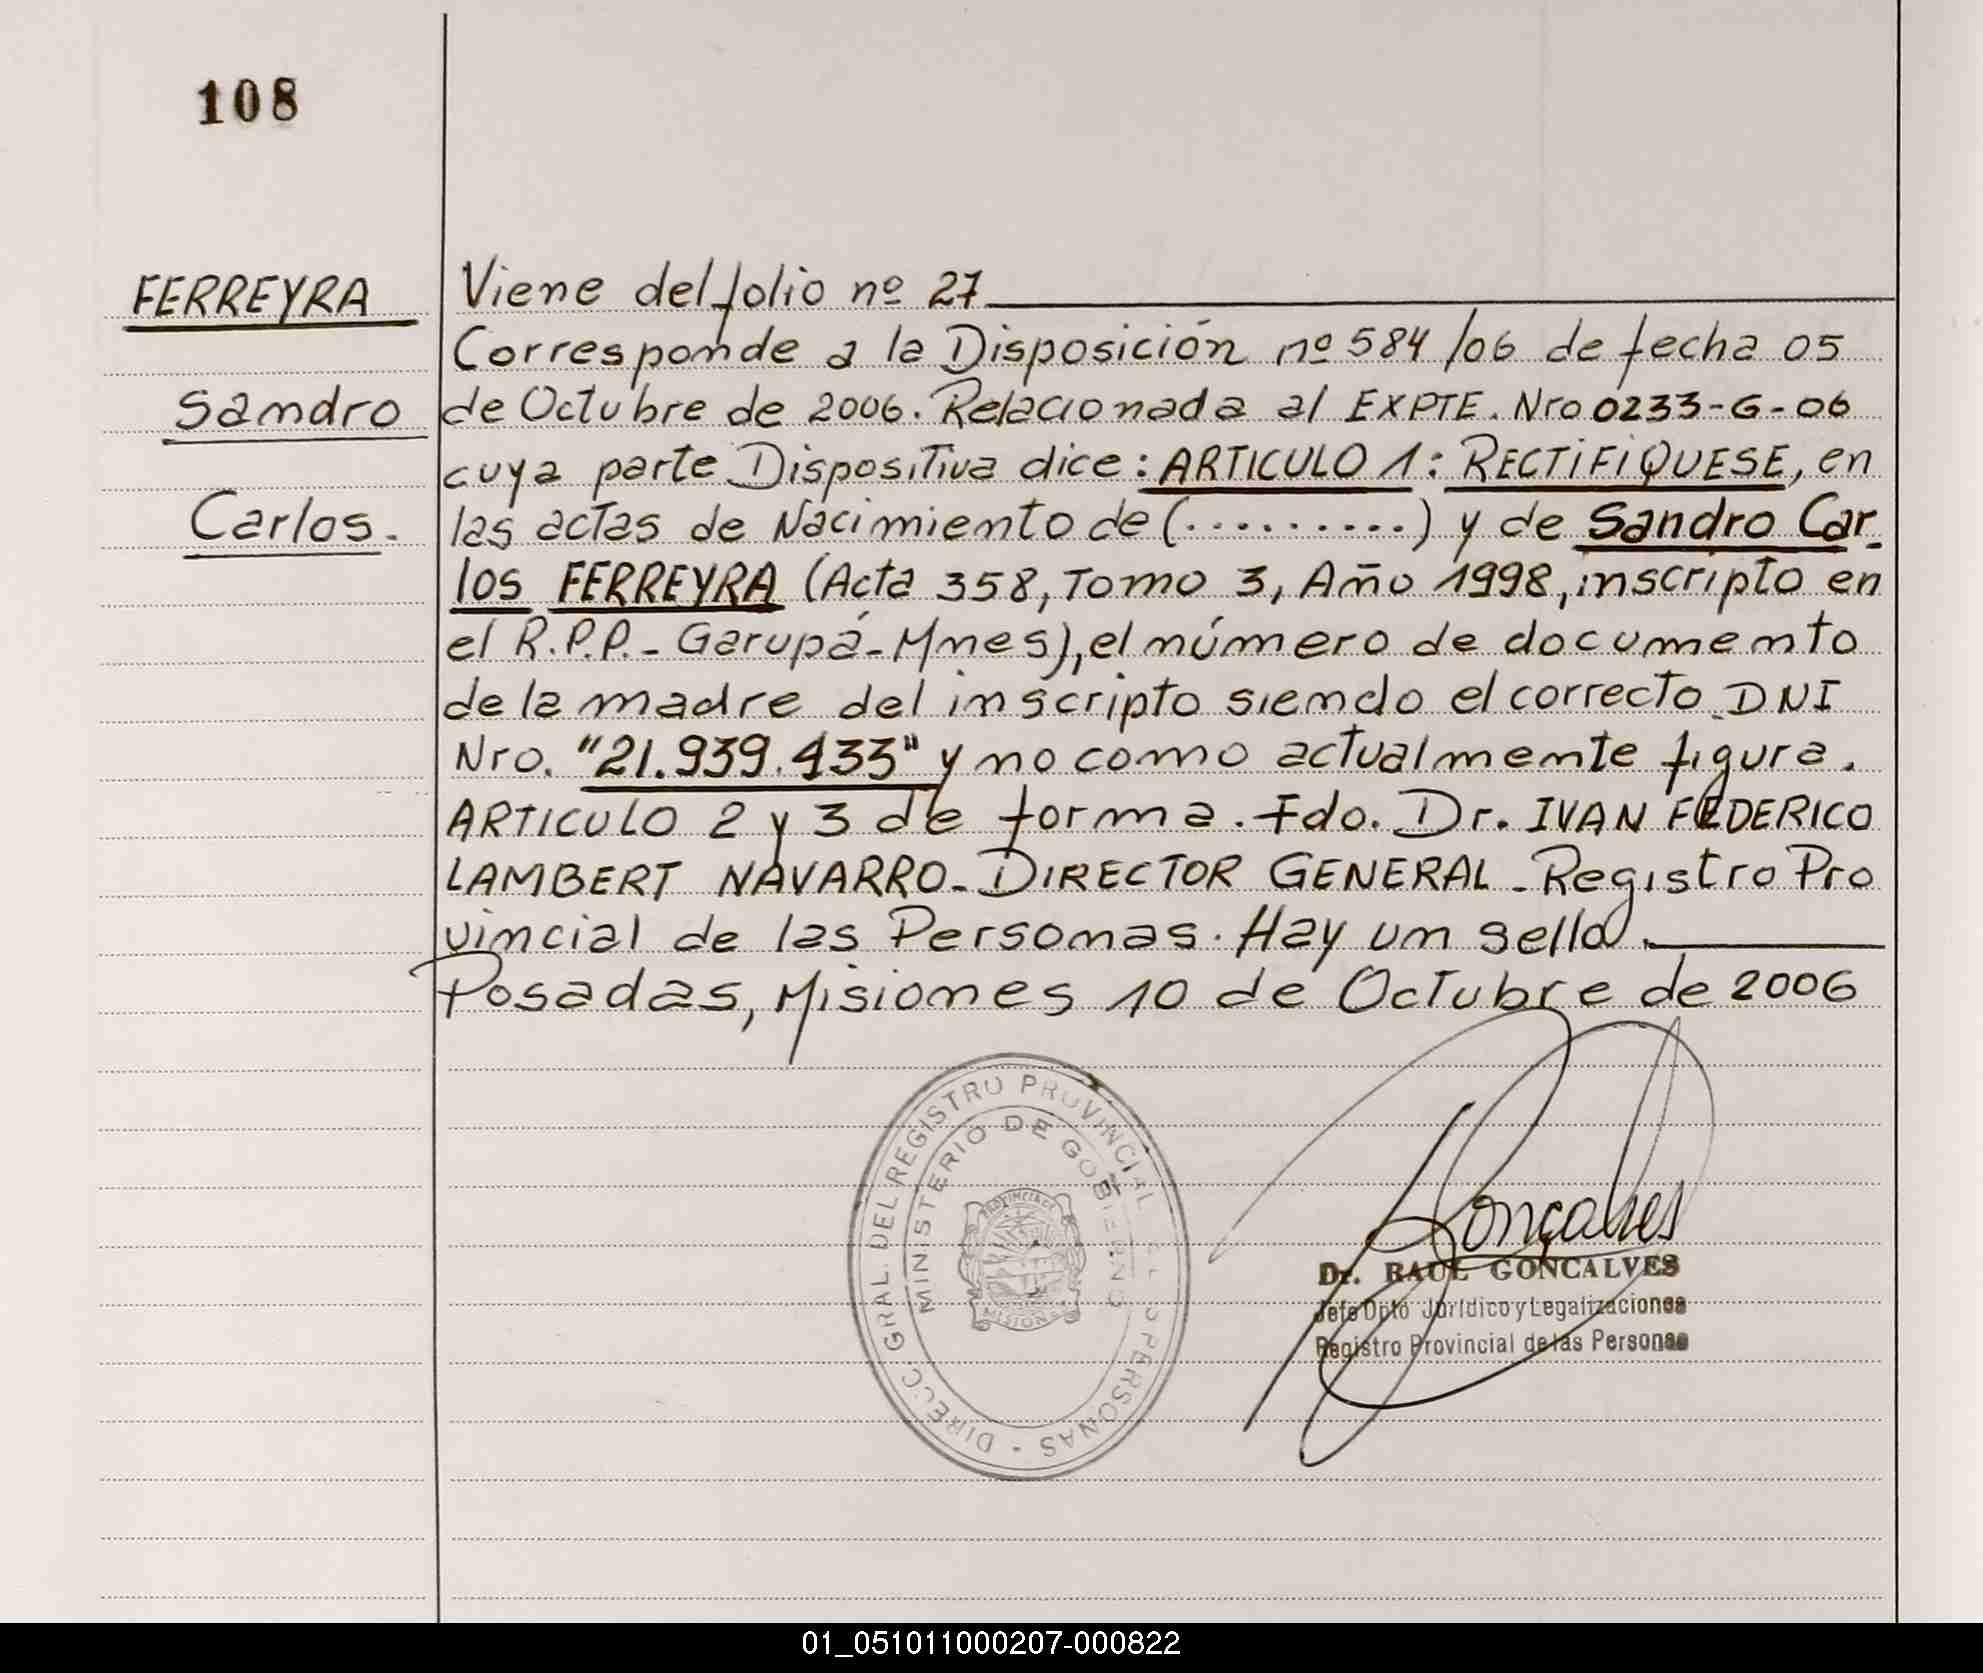 108
FERREYRA
Sandro
Carlos.
Viene del folio nº 27
Corresponde a la Disposición nº 584/06 de fecha 05
de Octubre de 2006. Relacionada al EXPTE. Nro 0233-G-06
cuya parte Dispositiva dice: ARTICULO 1: RECTIFIQUESE, en
las actas de Nacimiento de (.........) y de Sandro Car-
los FERREYRA (Acta 358, Tomo 3, Año 1998, inscripto en
el R.P.P.- Garupá-Mnes), el número de documento
de la madre del inscripto siendo el correcto DNI
Nro. "21.939.433" y no como actualmente figura.
ARTICULO 2 y 3 de forma. Fdo. Dr. IVAN FEDERICO
LAMBERT NAVARRO- DIRECTOR GENERAL - Registro Pro
vincial de las Personas. Hay un sello.
Posadas, Misiones 10 de Octubre de 2006
DIRECC GRAL. DEL REGISTRO PROVINCIAL PERSONAS
MINISTERIO DE GOBIERNO
MISIONES
Gonçalves
Dr. RAUL GONCALVES
Jefe Dpto Jurídico y Legalizaciones
Registro Provincial de las Personas
01_051011000207-000822